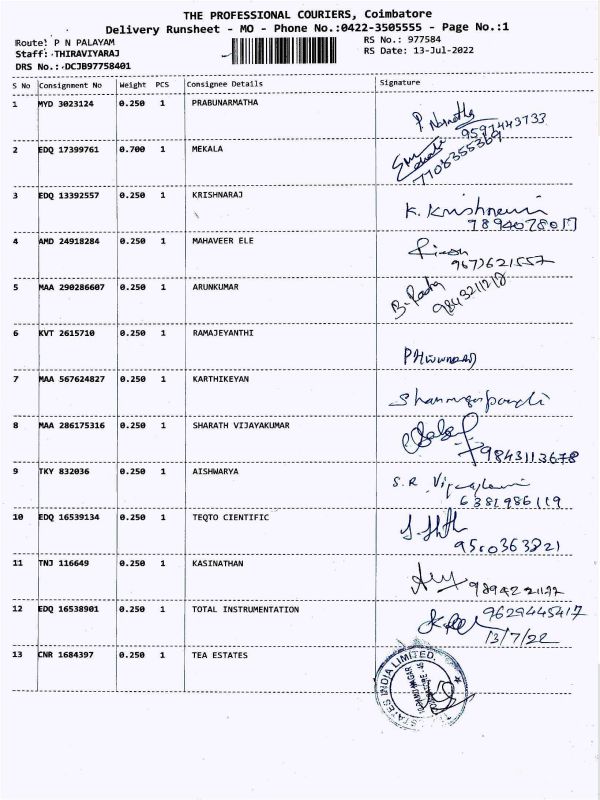 THE PROFESSIONAL COURIERS, Coimbatore
Delivery Runsheet - MO - Phone No.:0422-3505555 - Page No.:1
Route: P N PALAYAM RS No.: 977584
Staff: THIRAVIYARAJ RS Date: 13-Jul-2022
DRS No.: DCJB97758401
S No Consignment No Weight PCS Consignee Details Signature
1 MYD 3023124 0.250 1 PRABUNARMATHA
9597443733
2 EDQ 17399761 0.700 1 MEKALA
7708355369
3 EDQ 13392557 0.250 1 KRISHNARAJ
7894078017
4 AMD 24918284 0.250 1 MAHAVEER ELE
9677621557
5 MAA 290286607 0.250 1 ARUNKUMAR
6 KVT 2615710 0.250 1 RAMAJEYANTHI
7 MAA 567624827 0.250 1 KARTHIKEYAN
8 MAA 286175316 0.250 1 SHARATH VIJAYAKUMAR
9843113678
9 TKY 832036 0.250 1 AISHWARYA
S.R.
6381986119
10 EDQ 16539134 0.250 1 TEQTO CIENTIFIC
9500363821
11 TNJ 116649 0.250 1 KASINATHAN
12 EDQ 16538901 0.250 1 TOTAL INSTRUMENTATION
9629445417
13/7/22
13 CNR 1684397 0.250 1 TEA ESTATES
INDIA LIMITED